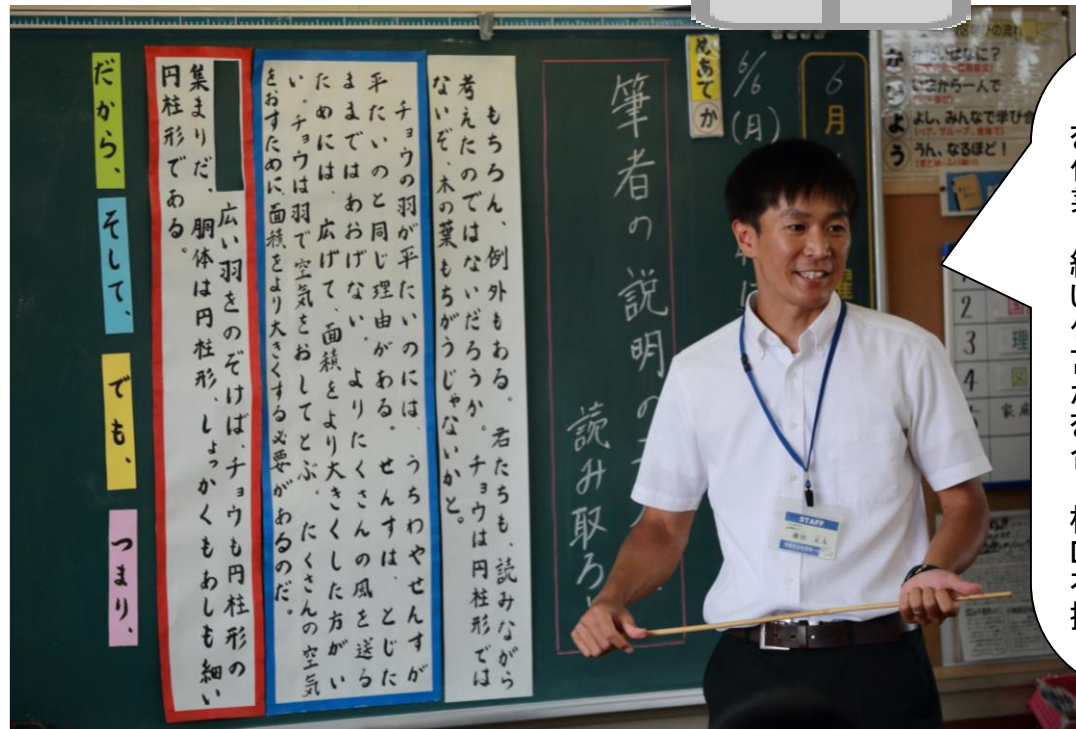 ６月
6/6(月)
めあて か
筆者の説明の
読み取ろ
もちろん、例外もある。君たちも、読みながら
考えたのではないだろうか。チョウは円柱形では
ないぞ、木の葉もちがうじゃないかと。
チョウの羽が平たいのには、うちわやせんすが
平たいのと同じ理由がある。せんすは、とじた
ままではあおげない。よりたくさんの風を送る
ためには、広げて、面積をより大きくした方がい
い。チョウは羽で空気をおしてとぶ。たくさんの空気
をおすために、面積をより大きくする必要があるのだ。
広い羽をのぞけば、チョウも円柱形の
集まりだ、胴体は円柱形、しょっかくもあしも細い
円柱形である。
だから、
そして、
でも、
つまり、
よし、みんなで学び合
う うん、なるほど！
STAFF
2
3 理
4 図
家庭